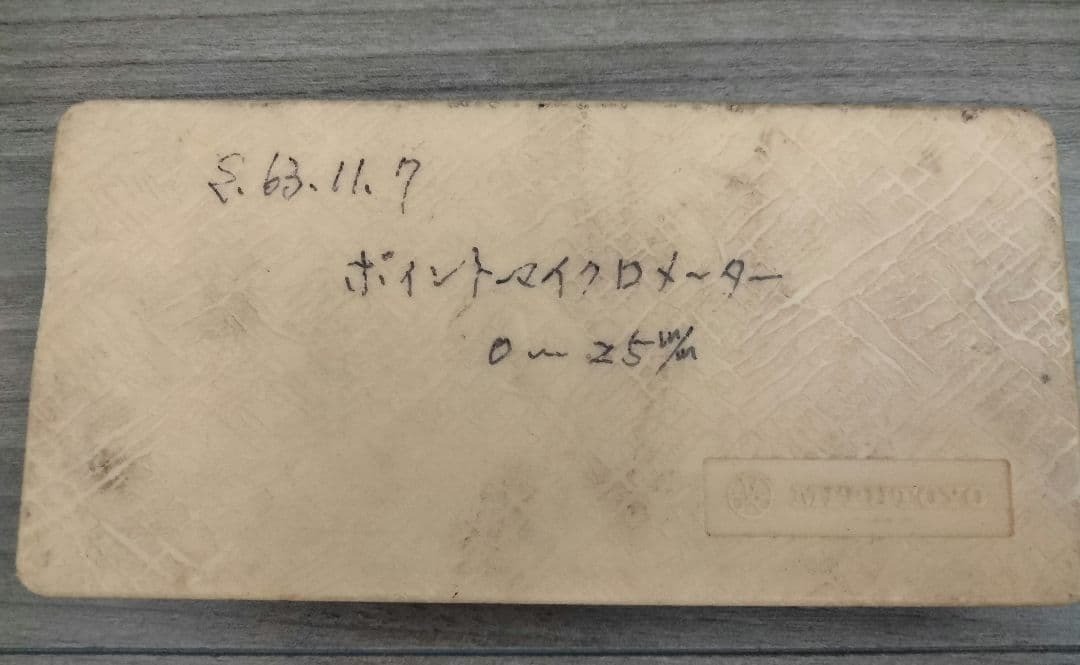 S. 63. 11. 7
ポイントマイクロメーター
0〜25m/m